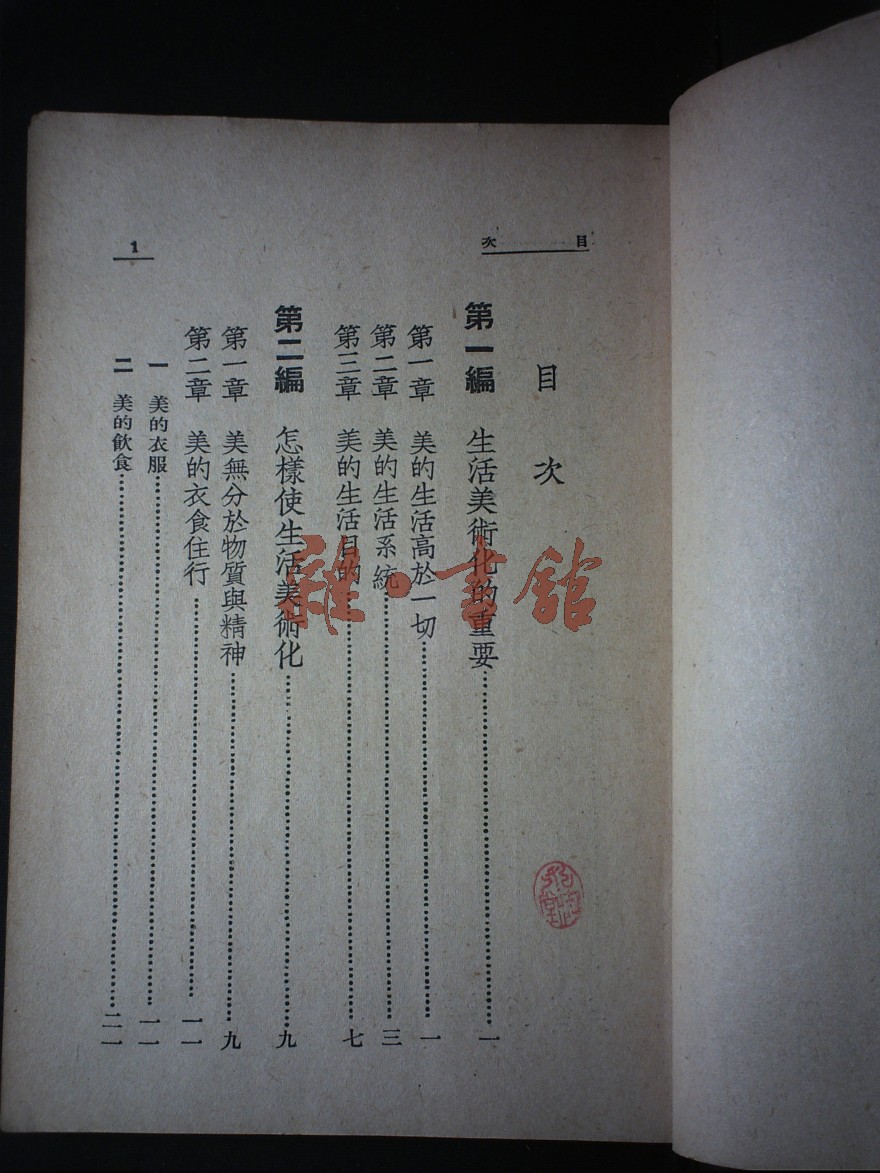 目次
1
目次
第一編 生活美術化的重要……一
第一章 美的生活高於一切……一
第二章 美的生活系統……三
第三章 美的生活目的……七
第二編 怎樣使生活美術化……九
第一章 美無分於物質與精神……九
第二章 美的衣食住行……一一
一 美的衣服……一一
二 美的飲食……二一
雜·書舘